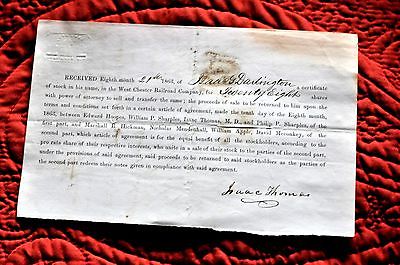 RECEIVED Eighth month 21st 1863, of Isaac G. Darlington, a certificate
of stock in his name, in the West Chester Railroad Company, for Twenty Eight shares
with power of attorney to sell and transfer the same; the proceeds of sale to be returned to him upon the
terms and conditions set forth in a certain article of agreement, made the tenth day of the Eighth month,
1863, between Edward Hoopes, William P. Sharples, Isaac Thomas, M. D., and Philip P. Sharples, of the
first part, and Marshall B. Hickman, Nicholas Mendenhall, William Apple, David Meconkey, of the
second part, which article of agreement is for the equal benefit of all the stockholders, according to the
pro rata share of their respective interests, who unite in a sale of their stock to the parties of the second part,
under the provisions of said agreement, said proceeds to be returned to said stockholders as the parties of
the second part redeem their notes given in compliance with said agreement.
Isaac Thomas